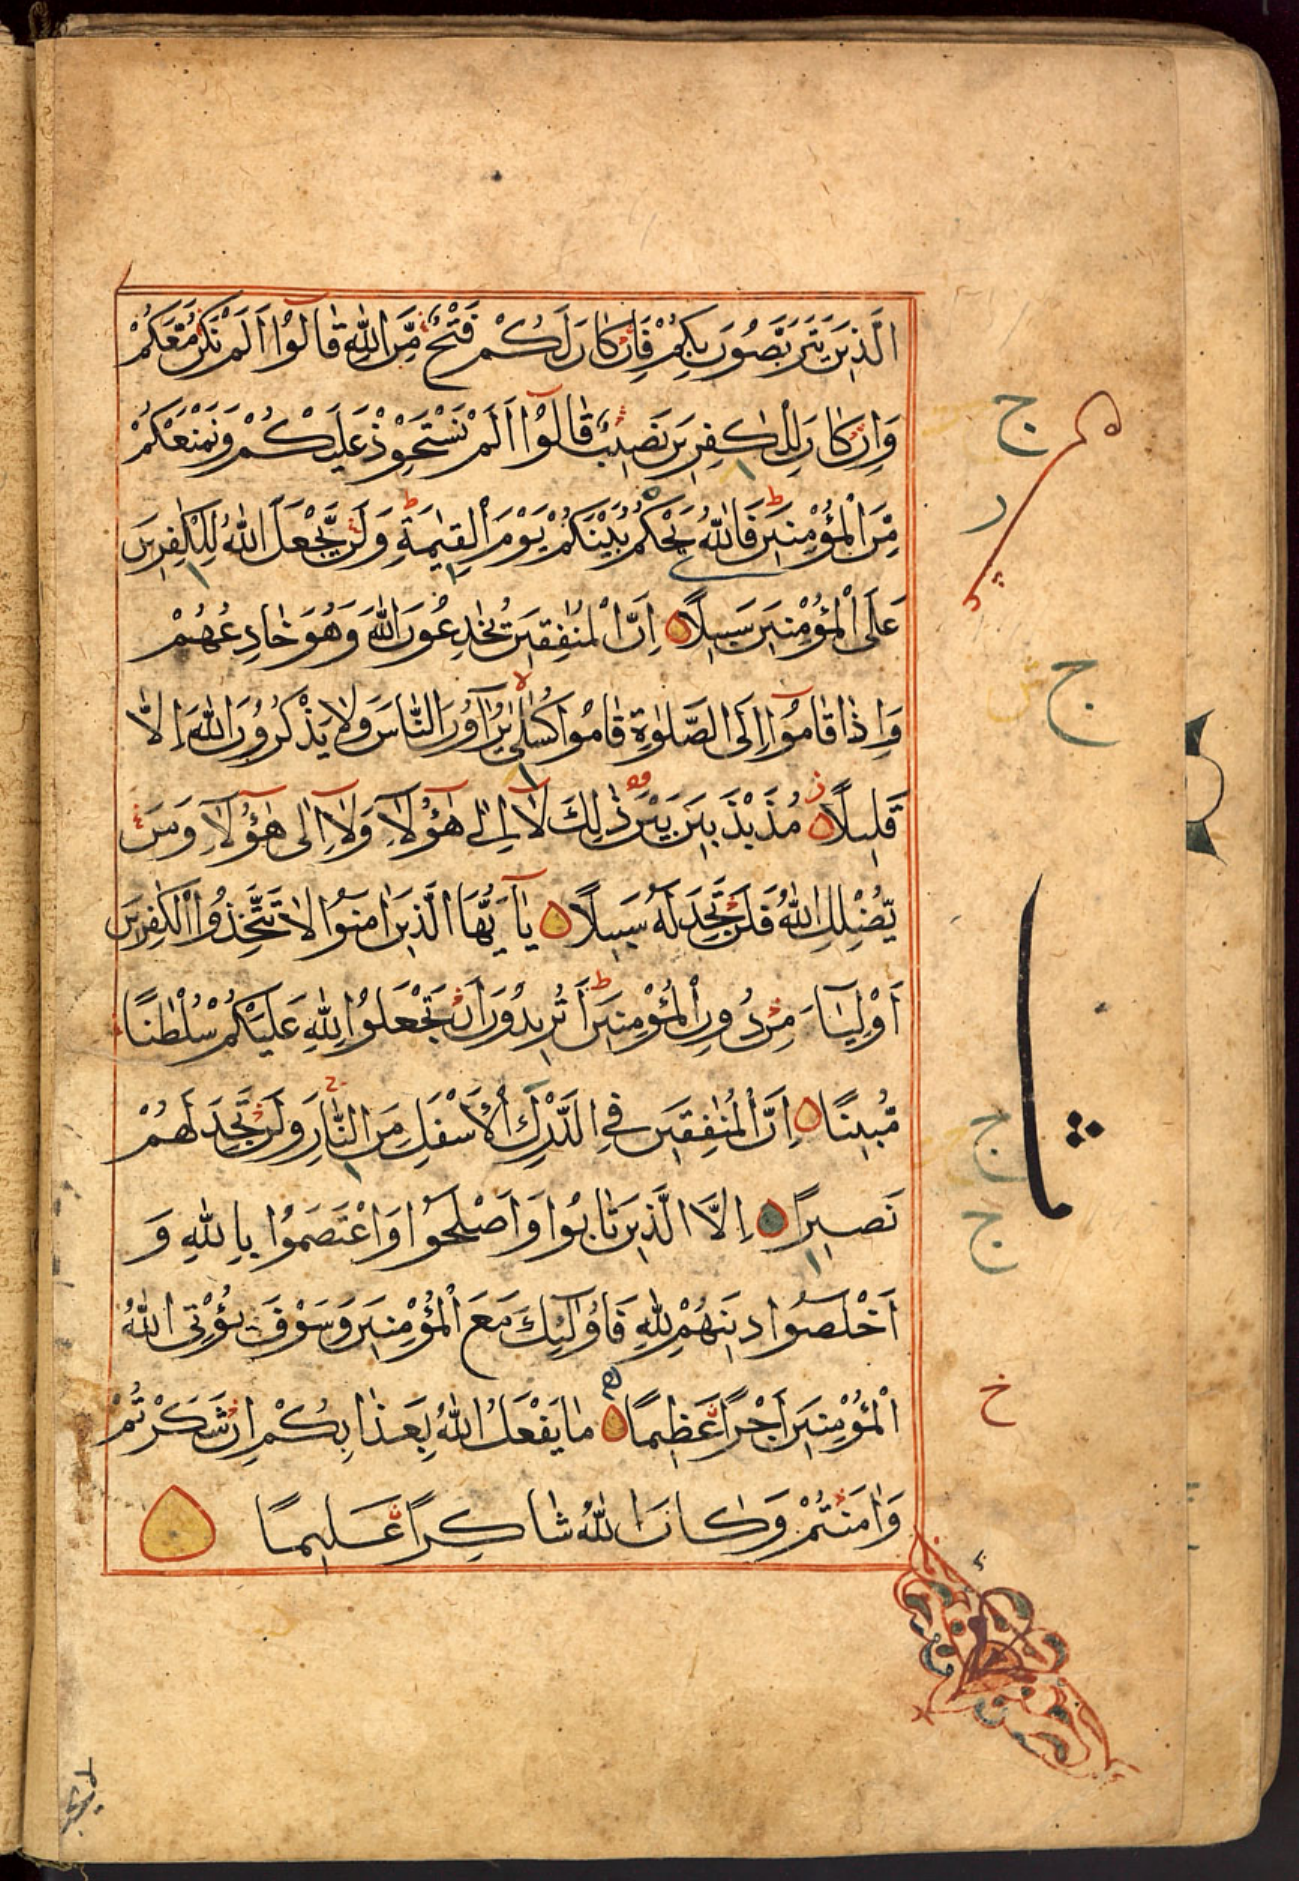 الَّذِينَ يَتَرَبَّصُونَ بِكُمْ فَاِنْ كَانَ لَكُمْ فَتْحٌ مِّنَ اللّٰهِ قَالُوْٓا اَلَمْ نَكُنْ مَّعَكُمْ
وَاِنْ كَانَ لِلْكٰفِرِينَ نَصِيبٌ قَالُوْٓا اَلَمْ نَسْتَحْوِذْ عَلَيْكُمْ وَنَمْنَعْكُمْ
مِّنَ الْمُؤْمِنِينَ فَاللّٰهُ يَحْكُمُ بَيْنَكُمْ يَوْمَ الْقِيٰمَةِ وَلَنْ يَّجْعَلَ اللّٰهُ لِلْكٰفِرِينَ
عَلَى الْمُؤْمِنِينَ سَبِيلًا اِنَّ الْمُنٰفِقِينَ يُخٰدِعُونَ اللّٰهَ وَهُوَ خَادِعُهُمْ
وَاِذَا قَامُوْٓا اِلَى الصَّلٰوةِ قَامُوا كُسَالٰى يُرَآؤُنَ النَّاسَ وَلَا يَذْكُرُونَ اللّٰهَ اِلَّا
قَلِيلًا مُذَبْذَبِينَ بَيْنَ ذٰلِكَ لَآ اِلٰى هٰٓؤُلَآءِ وَلَآ اِلٰى هٰٓؤُلَآءِ وَمَنْ
يُّضْلِلِ اللّٰهُ فَلَنْ تَجِدَ لَهُ سَبِيلًا يَآ اَيُّهَا الَّذِينَ اٰمَنُوا لَا تَتَّخِذُوا الْكٰفِرِينَ
اَوْلِيَآءَ مِنْ دُونِ الْمُؤْمِنِينَ اَتُرِيدُونَ اَنْ تَجْعَلُوا لِلّٰهِ عَلَيْكُمْ سُلْطٰنًا
مُّبِينًا اِنَّ الْمُنٰفِقِينَ فِي الدَّرْكِ الْاَسْفَلِ مِنَ النَّارِ وَلَنْ تَجِدَ لَهُمْ
نَصِيرًا اِلَّا الَّذِينَ تَابُوا وَاَصْلَحُوا وَاعْتَصَمُوا بِاللّٰهِ وَ
اَخْلَصُوا دِينَهُمْ لِلّٰهِ فَاُولٰٓئِكَ مَعَ الْمُؤْمِنِينَ وَسَوْفَ يُؤْتِي اللّٰهُ
الْمُؤْمِنِينَ اَجْرًا عَظِيمًا مَا يَفْعَلُ اللّٰهُ بِعَذَابِكُمْ اِنْ شَكَرْتُمْ
وَاٰمَنْتُمْ وَكَانَ اللّٰهُ شَاكِرًا عَلِيمًا
ج
ج
ج
ج
خ